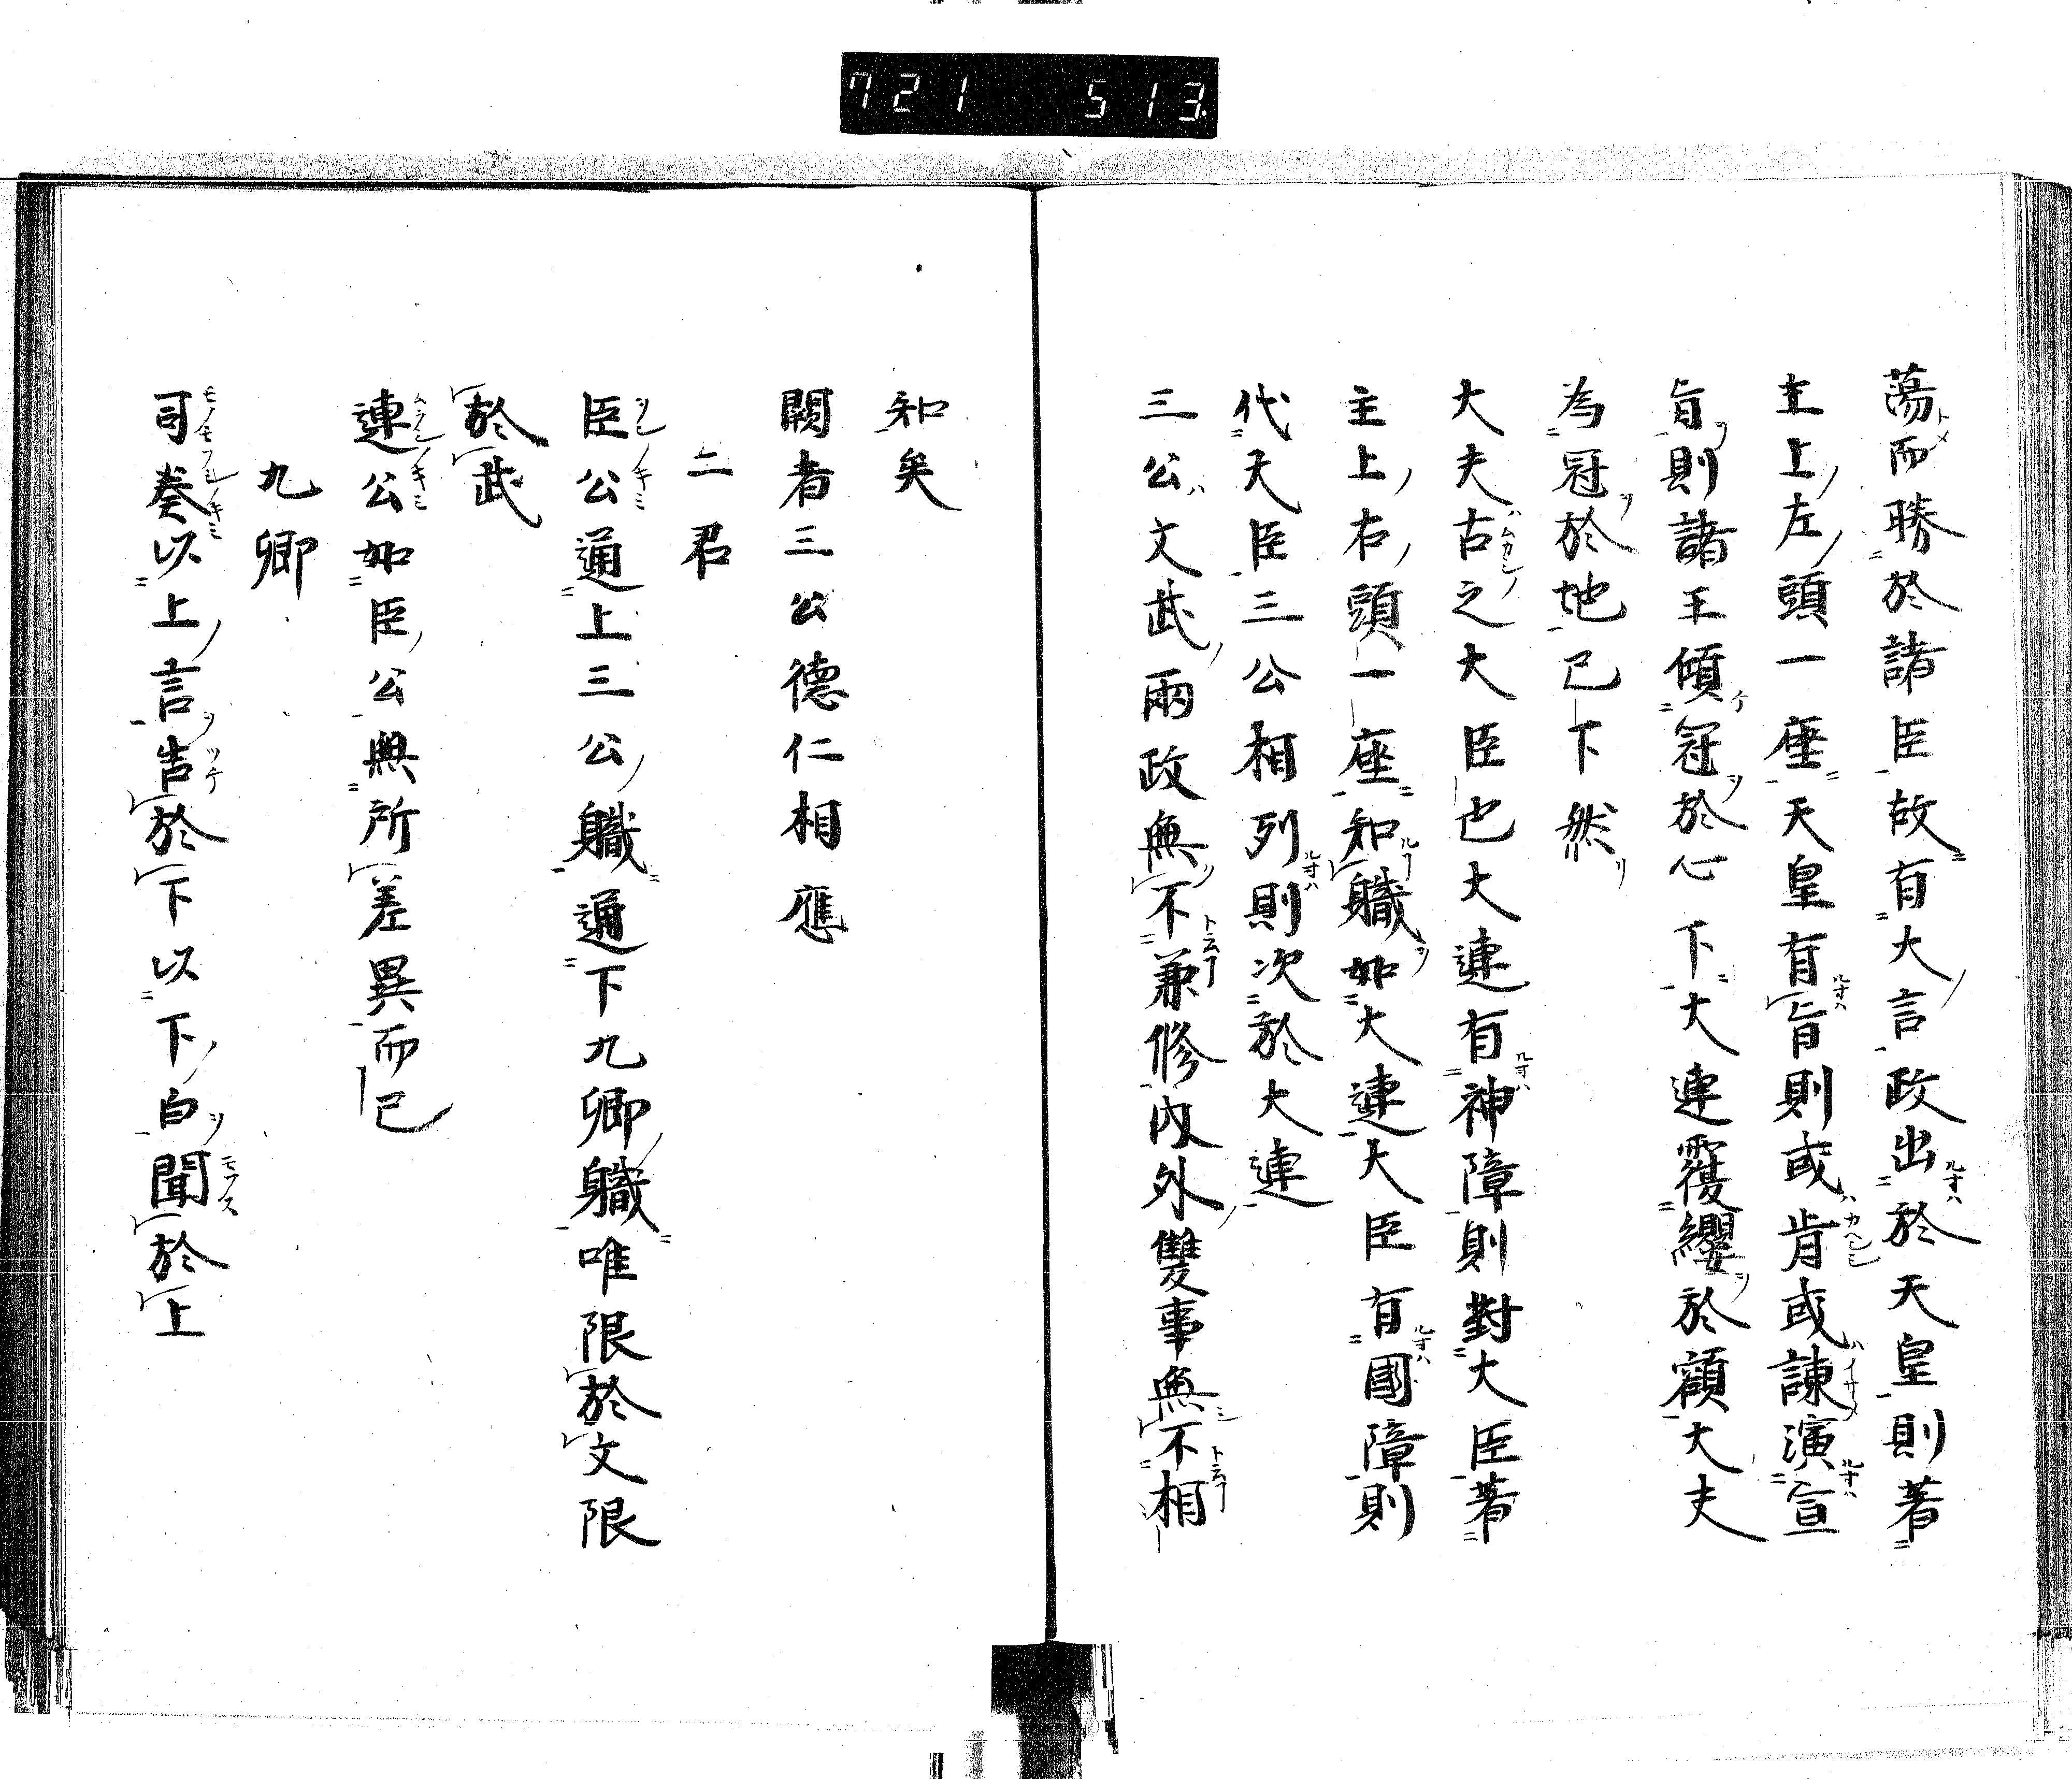 721 513
蕩而勝於諸臣故有大言政出於天皇則著
主上左頭一座天皇有旨則或肯或諫演宣
旨則諸王傾冠於心下大連覆纓於額大夫
為冠於地已下然
大夫古之大臣也大連有神障則對大臣著
主上右頭一座知職如大連大臣有國障則
代天臣三公相列則次於大連
三公文武兩政無不兼修內外雙事無不相
知矣
闕者三公德仁相應
二君
臣公通上三公職通下九卿職唯限於文限
於武
連公如臣公與所差異而已
九卿
司奏以上言告於下以下白聞於上